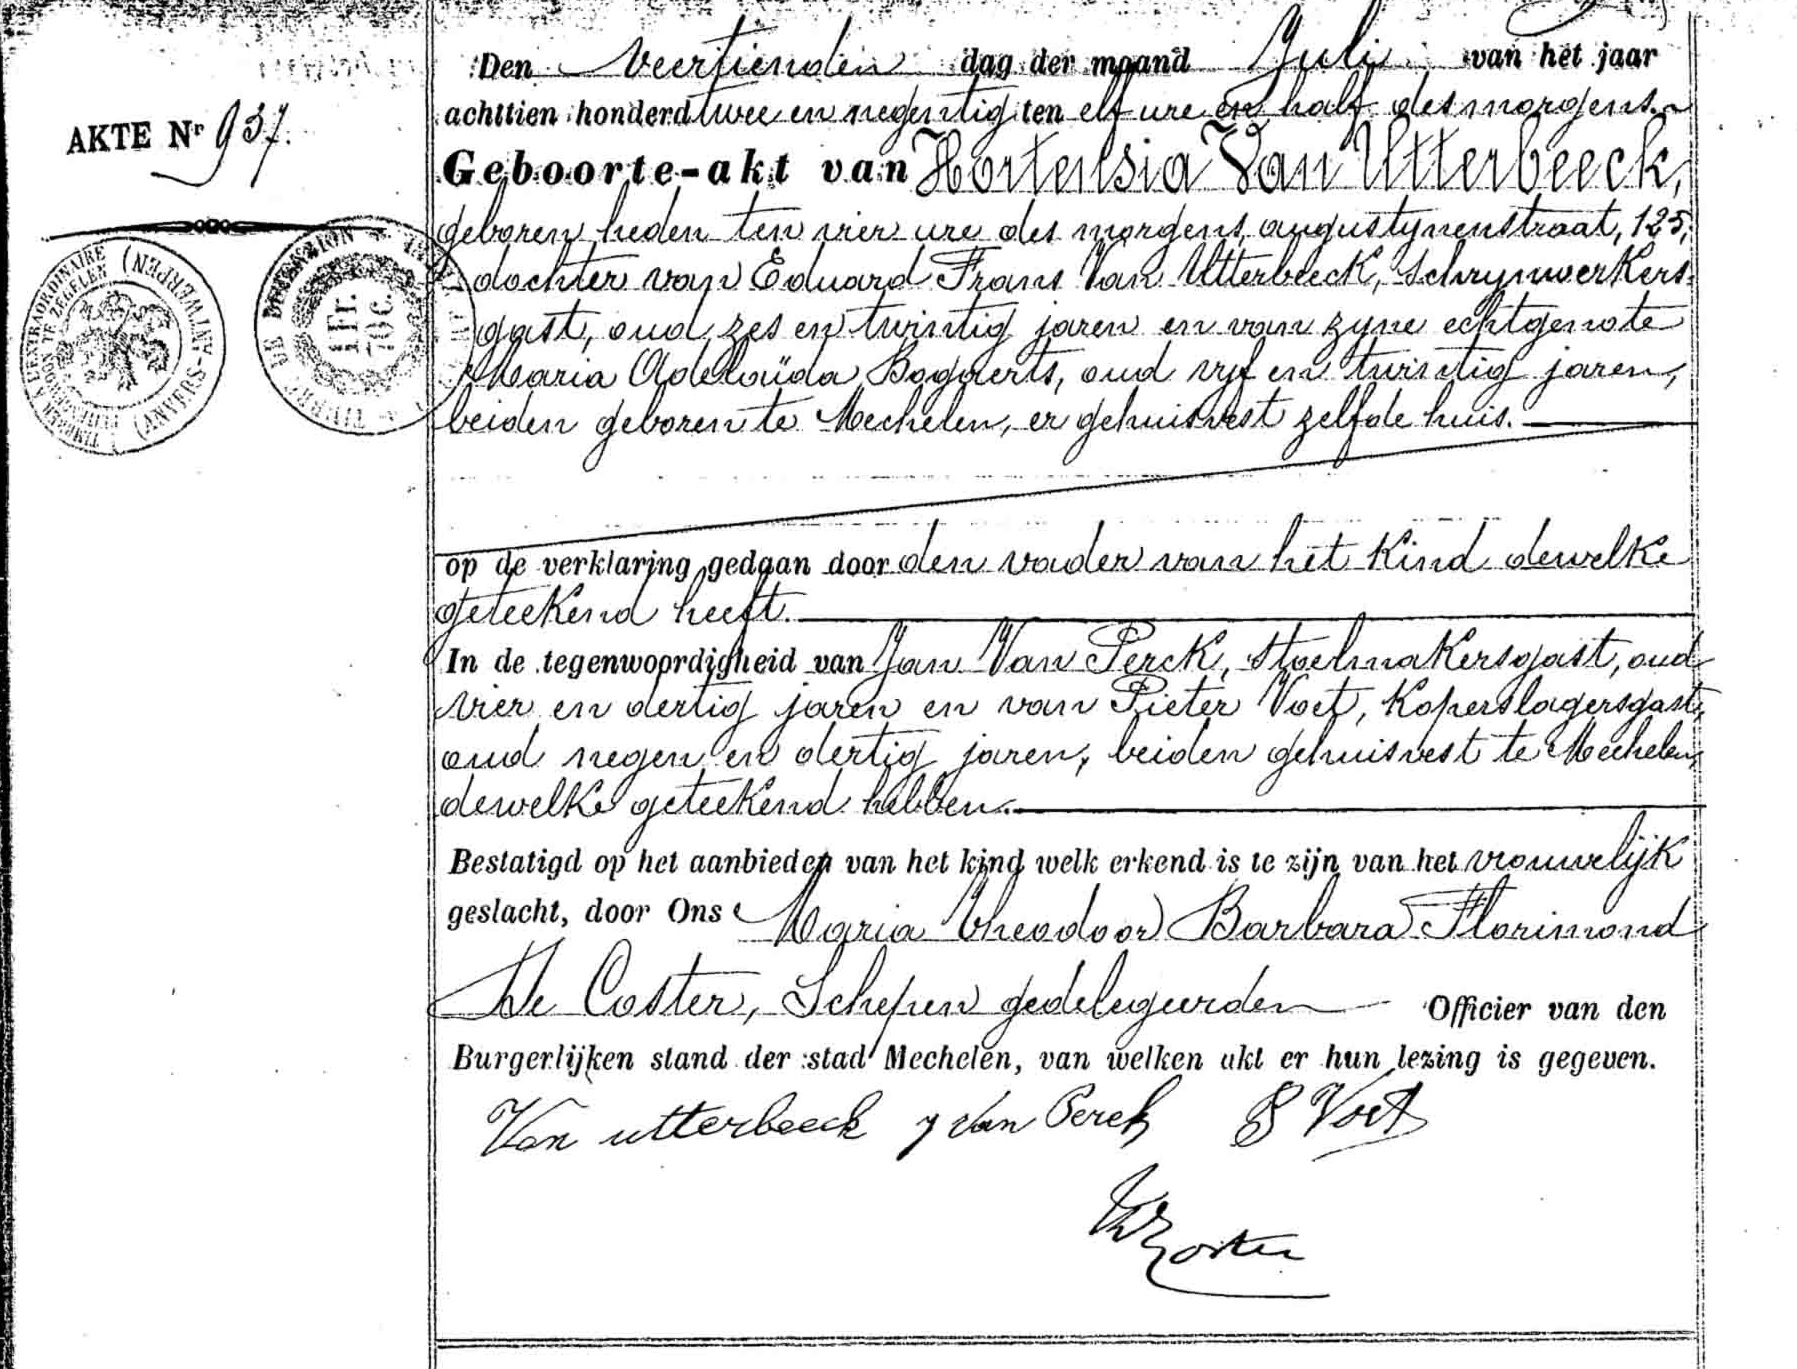 AKTE Nr 937.
TIMBRE A L'EXTRAORDINAIRE
BUITENGEWOON TE ZEGELEN
(ANVERS-ANTWERPEN)
TIMBRE DE DIMENSION
1 Fr.
70 C.
Den Veertienden dag der maand Juli van het jaar
achttien honderd twee en negentig ten elf ure en half des morgens.
Geboorte-akt van Hortensia Van Utterbeeck,
geboren heden ten vier ure des morgens, augustynenstraat, 125,
dochter van Eduard Frans Van Utterbeeck, Schrynwerkers-
gast, oud zes en twintig jaren en van zyne echtgenote
Maria Adelaïda Bogaerts, oud vyf en twintig jaren,
beiden geboren te Mechelen, er gehuisvest zelfde huis.
op de verklaring gedaan door den vader van het Kind dewelke
geteekend heeft.
In de tegenwoordigheid van Jan Van Perck, Stoelmakersgast, oud
vier en dertig jaren en van Pieter Voet, Koperslagersgast,
oud negen en dertig jaren, beiden gehuisvest te Mechelen,
dewelke geteekend hebben.
Bestatigd op het aanbieden van het kind welk erkend is te zijn van het vrouwelijk
geslacht, door Ons Maria Theodoor Barbara Florimond
De Coster, Schepen gedelegeerden Officier van den
Burgerlijken stand der stad Mechelen, van welken akt er hun lezing is gegeven.
Van utterbeeck J Van Perck P Voet